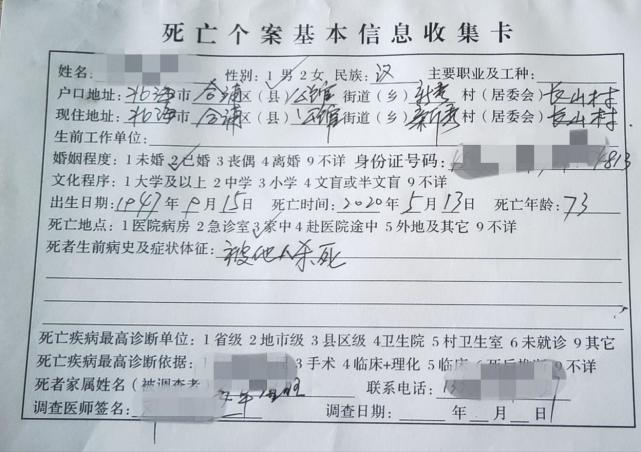 死亡个案基本信息收集卡
姓名: 性别: 1 男 2 女, 民族: 汉 主要职业及工种:
户口地址: 北海市 合浦区(县) 公馆街道(乡) 村(居委会) 长山村
现住地址: 北海市 合浦区(县) 公馆街道(乡) 村(居委会) 长山村
生前工作单位:
婚姻程度: 1 未婚 2 已婚 3 丧偶 4 离婚 9 不详 身份证号码: 4813
文化程序: 1 大学及以上 2 中学 3 小学 4 文盲或半文盲 9 不详
出生日期: 1947年 9月 15日 死亡时间: 2020年 5月 13日 死亡年龄: 73
死亡地点: 1 医院病房 2 急诊室 3 家中 4 赴医院途中 5 外地及其它 9 不详
死者生前病史及症状体征: 被他人杀死
死亡疾病最高诊断单位: 1 省级 2 地市级 3 县区级 4 卫生院 5 村卫生室 6 未就诊 9 其它
死亡疾病最高诊断依据: 3 手术 4 临床+理化 5 临床 9 不详
死者家属姓名(被调查者) 联系电话:
调查医师签名: 调查日期: 年 月 日